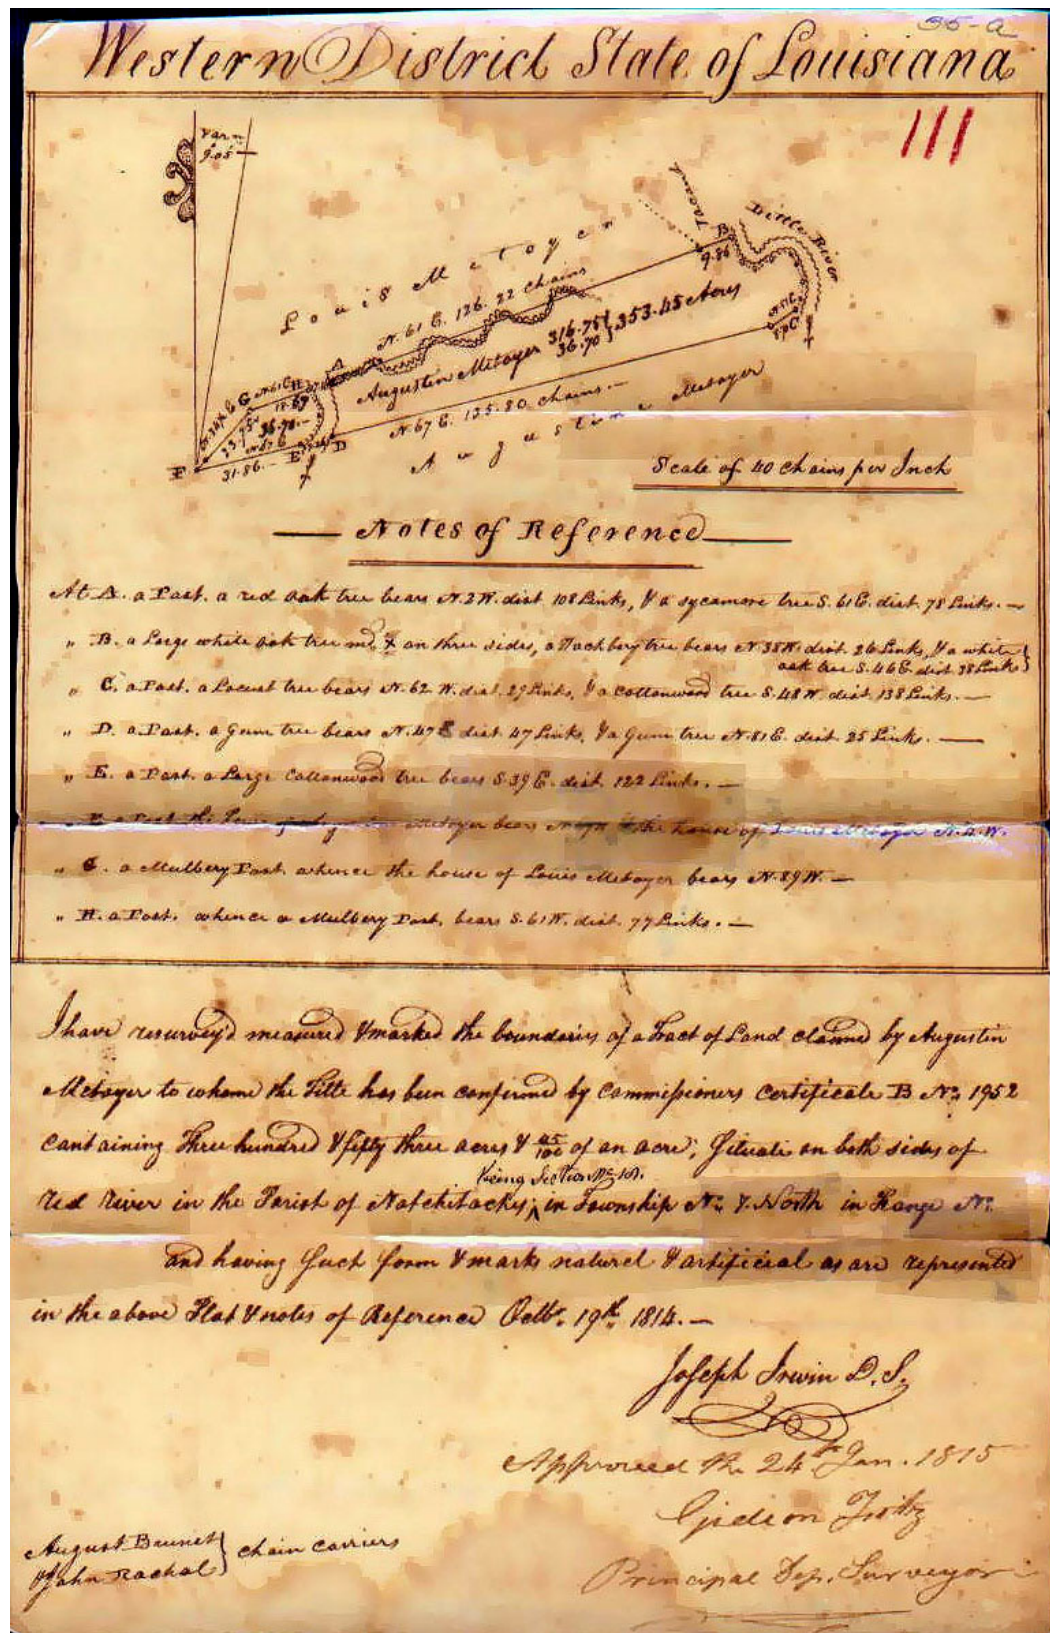 35-a
Western District State of Louisiana
111
Varn
9.05
Little River
B
9.86
Louis Metoyer
N. 61 E. 126.22 Chains
A
316.75
36.70 } 353.45 Acres
Augustin Metoyer
G
H
36.70
N. 67 E. 135.80 chains.
Augustine Metoyer
F
31.86
E
D
Scale of 40 Chains per Inch
Notes of Reference
At A. a Post. a red oak tree bears N. 2 W. dist 108 Links, & a sycamore tree S. 61 E. dist. 78 Links.
" B. a Large white oak tree on three sides, a Hackbery tree bears N. 38 W. dist. 26 Links, & a white
oak tree S. 46 E. dist. 38 Links
" C. a Post. a Locust tree bears N. 62 W. dist. 29 Links, & a Cottonwood tree S. 48 W. dist. 138 Links.
" D. a Post. a Gum tree bears N. 47 E dist. 47 Links, & a Gum tree N. 81 E. dist. 25 Links.
" E. a Post. a Large Cottonwood tree bears S. 39 E. dist. 122 Links.
" F. a Post the Metoyer bears & the house of Louis Metoyer N. 4. W.
" G. a Mulbery Post. whence the house of Louis Metoyer bears N. 89 W.
" H. a Post. whence a Mulbery Post, bears S. 61 W. dist. 77 Links.
I have resurvey'd measured & marked the boundaries of a Tract of Land claimed by Augustin
Metoyer to whome the Title has been confirmed by Commissioners Certificate B No. 1952
containing Three hundred & fifty three acres & 45/100 of an acre, Situate on both sides of
being Section No.
red river in the Parish of Natchitoches, in Township No. 7. North in Range No.
and having Such form & marks naturel & artificial as are represented
in the above Plat & notes of Reference Octbr. 19th. 1814.
Joseph Irwin D. S.
Approved the 24th Jan. 1815
Gideon Fitz
Principal Dep. Surveyor
August Beunet
& John Rachal } chain carriers